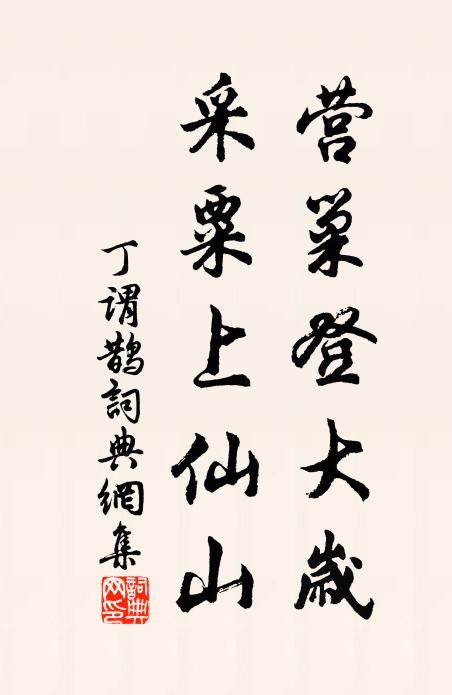 营巢登大歲
采粟上仙山
丁谓鹊詞典網集
詞典网印